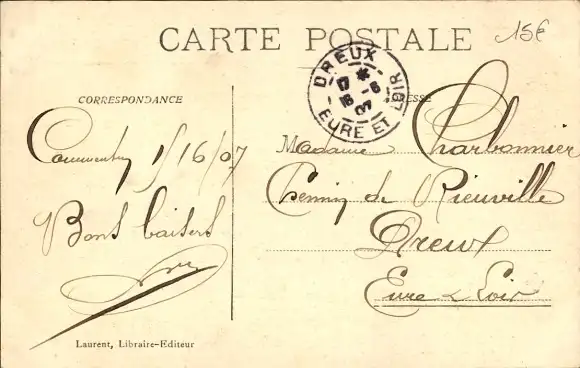 CARTE POSTALE
15€
DREUX
17 *
16 -6
07
EURE ET LOIR
CORRESPONDANCE
Commentry 1/16/07
Bons baisers
Madame Charbonnier
Chemin de Rieuville
Dreux
Eure & Loir
Laurent, Libraire-Editeur